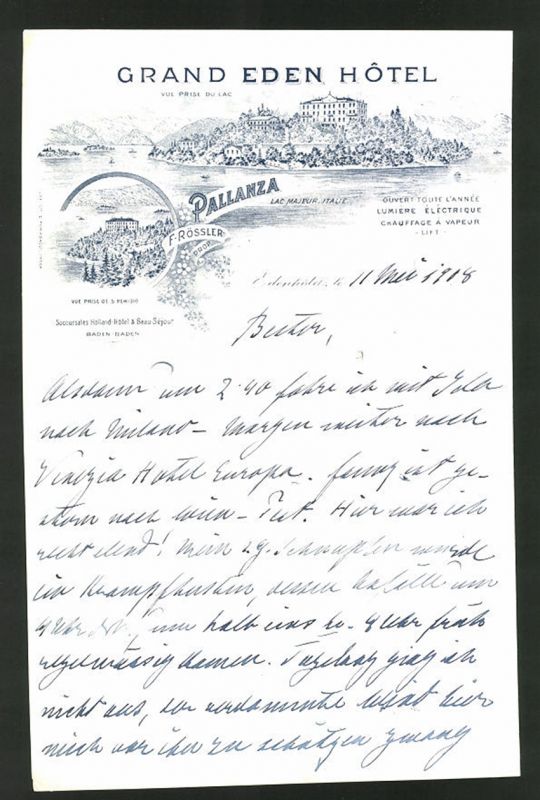 GRAND EDEN HÔTEL
VUE PRISE DU LAC
PALLANZA
LAC MAJEUR, ITALIE
F. RÖSSLER
PROP.
OUVERT TOUTE L'ANNÉE
LUMIÈRE ÉLECTRIQUE
CHAUFFAGE À VAPEUR
- LIFT -
VUE PRISE DE S. REMIGIO
Succursales Holland-Hôtel & Beau Séjour
BADEN-BADEN
le 11 Mai 1908
Bester,
um 2.40 fahre ich mit
nach Milano – Morgen weiter nach
Venezia Hotel Europa. ist ge-
stern nach Wien – Hier war ich
recht elend! Mein s.g. Schnupfen wurde
ein Krampfhusten, dessen Anfälle um
um halb eins bis 4 Uhr früh
regelmässig kamen. Tagelang ging ich
nicht aus, der verdammte Wind hier
mich vor ihm zu schützen zwang